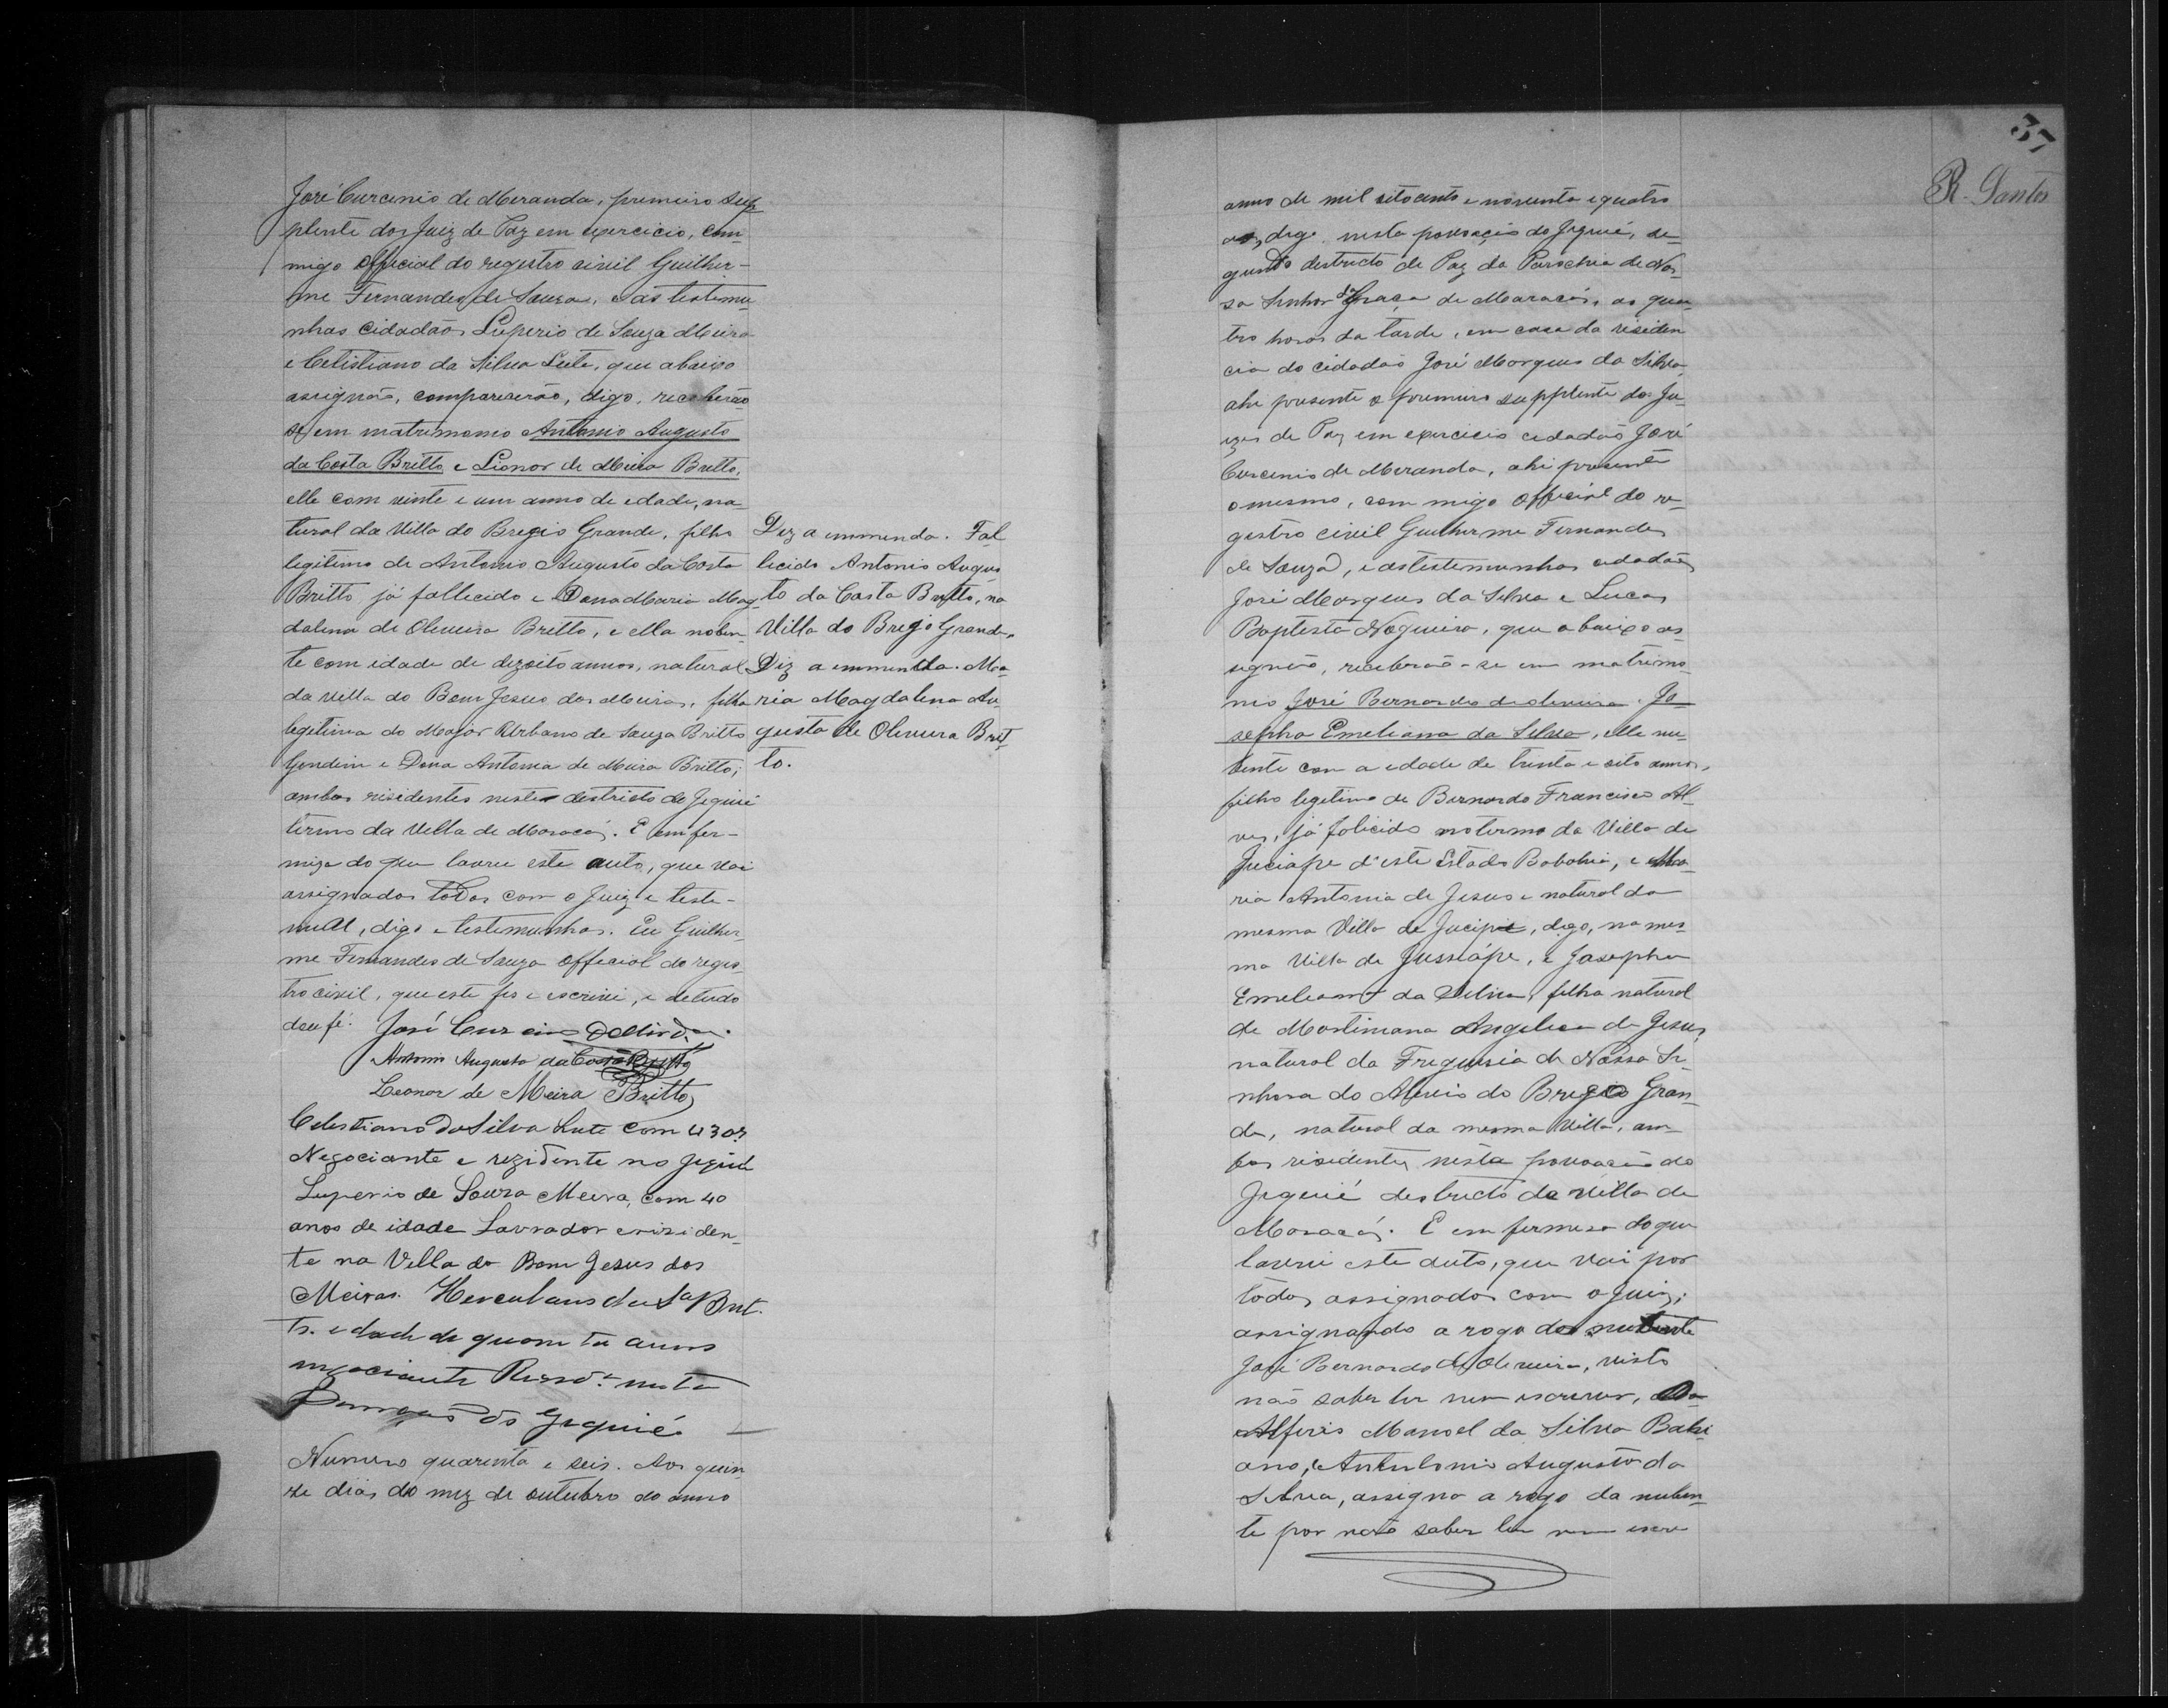 José Curcenio de Meranda, primeiro sup
plente dos Juiz de Paz em exercicio, com-
migo official do registro civil Guilher-
me Fernandes de Souza, e as testemu
nhas cidadãos Luperio de Souza Meira
e Celistiano da Silva Leite, que abaixo
assignão, comparecerão, digo, receberão
se em matrimonio Antonio Augusto
da Costa Britto e Lionor de Meira Britto,
elle com vinte e um anno de edade, na-
tural da Villa do Brejo Grande, filho
legitimo de Antonio Augusto da Costa
Britto já fallecido e Dona Maria Mag-
dalena de Oliveira Britto, e ella noben-
te com idade de dezoito annos, natural
da Villa do Bom Jesus dos Meiras, filha
legitima do Major Urbano de Souza Britto
Gondim e Dona Antonia de Meira Britto;
ambos residentes neste destricto de Jequié
termo da Villa de Maracás. E em fer-
miza do que lavrei este auto, que vai
assignados todos com o Juiz e teste-
mull, digo e testemunhas. Eu Guilher-
me Fernandes de Souza official do regis-
tro civil, que este fis e escrivi, e de tudo
dou fé. José Curcino
Antonio Augusto da Costa Britto
Leonor de Meira Britto
Celestiano da Silva Leite com 43 a.
Negociante e rezidente no Jequié
Luperio de Souza Meira, com 40
anos de idade Lavrador e rizi den-
te na Villa do Bom Jesus dos
Meiras. Herculano da Sa Brit-
to. edade de quarenta annos
negociante nesta
do Jequié
Numero quarenta e seis. Aos quin
ze dias do mez de outubro do anno
Diz a emmenda. Fal
licido Antonio Augus
to da Costa Britto, na
Villa do Brejo Grande.
Diz a emmenda. Ma-
ria Magdalena Au-
gusta de Oliveira Brit-
to.
37
R. Santos
anno de mil oitocento e noventa e quatro
digo nesta povoação do Jequié, se-
gundo destricto de Paz da Parochia de Nos-
sa Senhor da Graça de Maracás, as qua
tro horas da tarde, em casa da residen
cia do cidadão José Marques da Silva,
ahi presente o primeiro supplente dos Ju-
izes de Paz em exercicio cidadão José
Curcenio de Meranda, ahi presente
o mesmo, com migo official do re-
gistro civil Guilherme Fernandes
de Souza, e as testemunhas cidadãos
José Marques da Silva e Lucas
Baptista Nogueira, que abaixo as-
signão, receberão-se em matrimo
nio José Bernardes de oliveira. Jo-
sepha Emeliana da Silva, elle nu-
bente com a edade de trinta e oito annos,
filho legitimo de Bernardo Francisco Al-
ves, já falicido no termo da Villa de
Juciape d'este Estado Babahia, e Ma-
ria Antonia de Jesus e natural da
mesma Villa de Jucipe, digo, na mes-
ma Villa de Jussiápe, e Josepha
Emeliana da Silva, filha natural
de Martiniana Angelica de Jesus,
natural da Freguisia de Nossa Se-
nhora do Alivio do Brejo Gran-
de, natural da mesma Villa, am-
bos residentes nesta povoação do
Jequié destricto da Villa de
Maracás. E em fermeza do que
lavrei este auto, que vai por
todos assignados com o Juiz;
assignando a rogo do nubente
José Bernardo de Oliveira, visto
não saber ler nem escrever,
Alferis Manoel da Silva Bahi
ano, e Antulonio Augusto da
Silva, assigna a rogo da nuben-
te por não saber ler nem escre